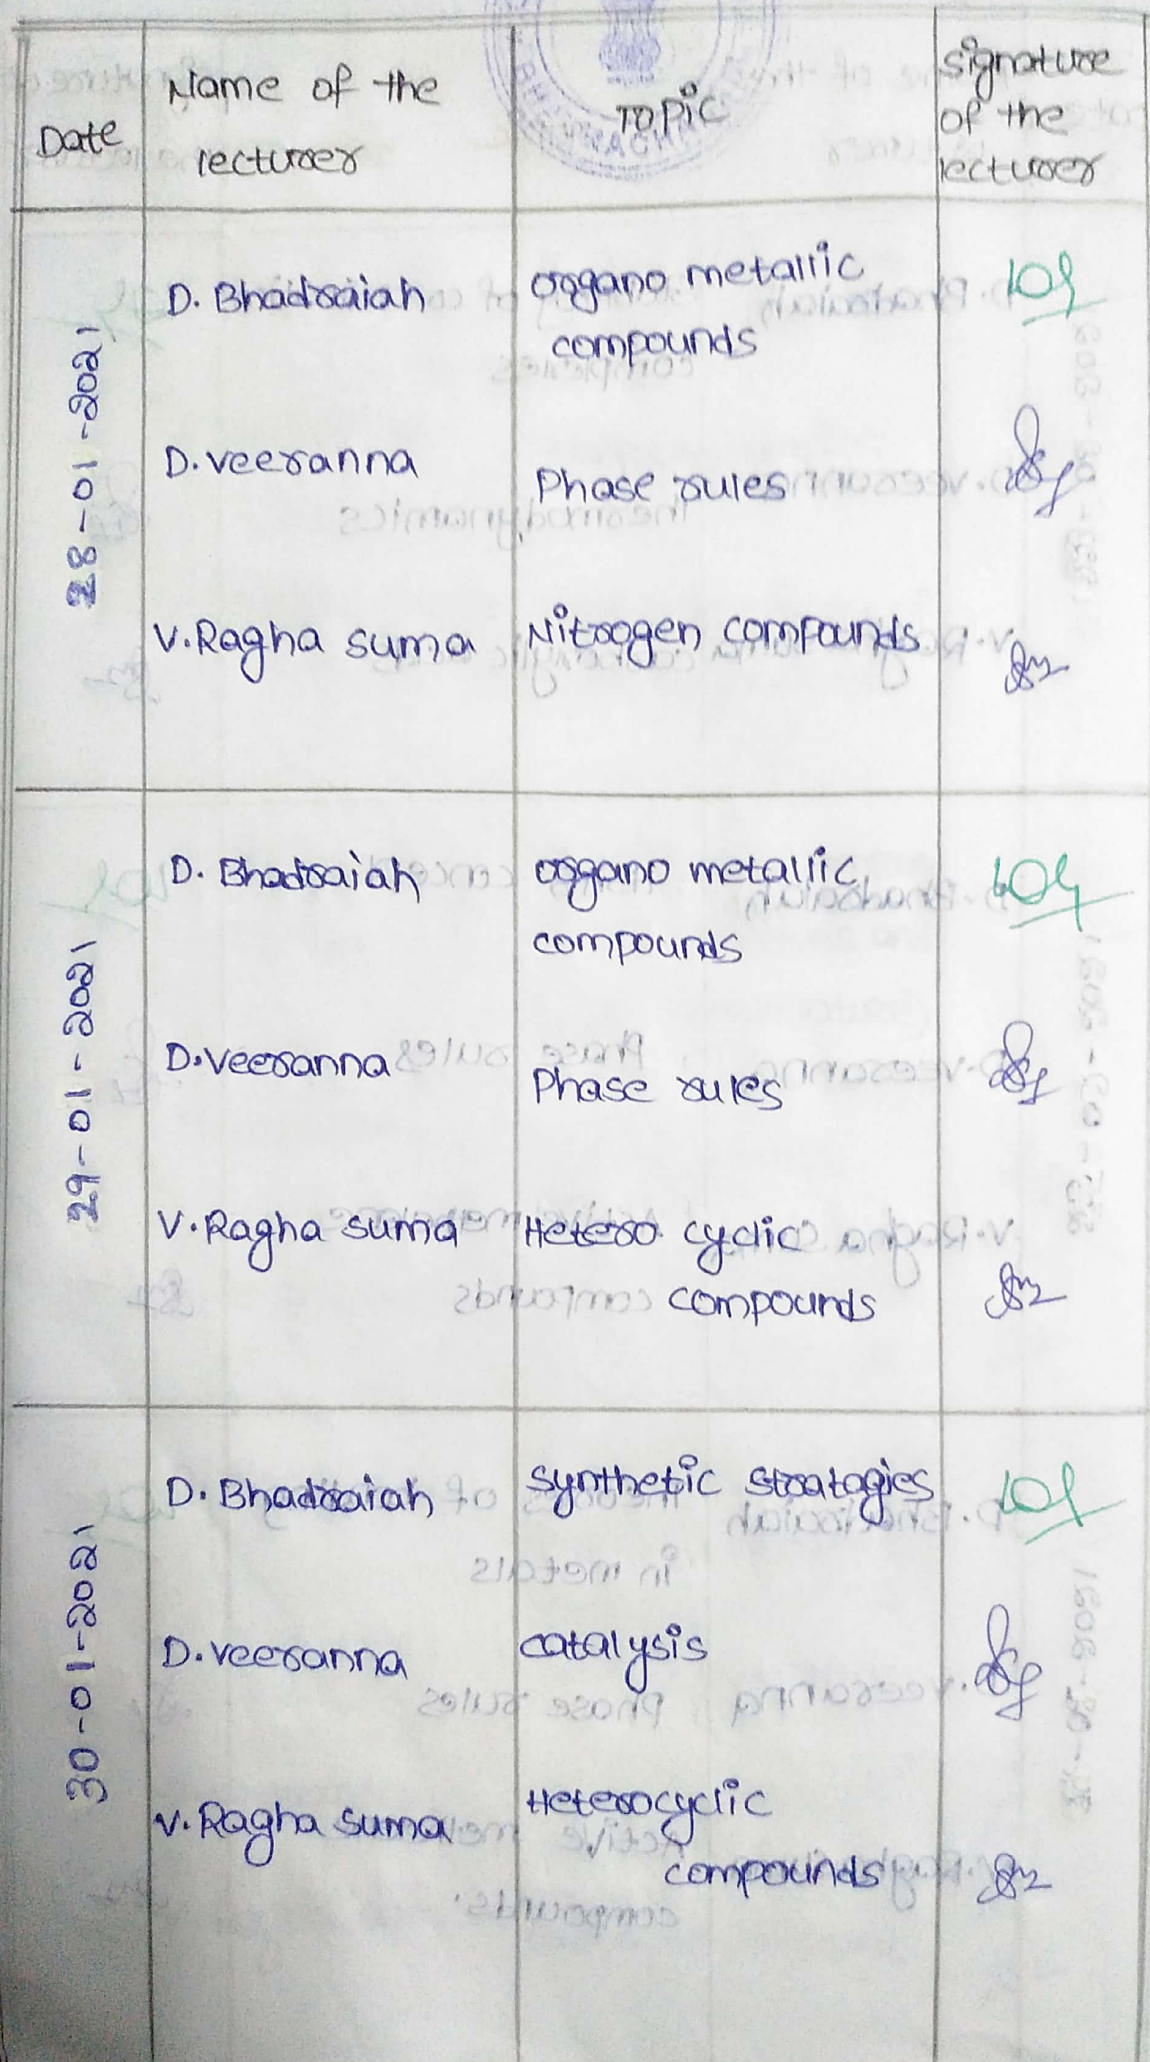 Date
Name of the
lecturer
Topic
signature
of the
lecturer
28-01-2021
D. Bhadraiah
organo metallic
compounds
D. veeranna
Phase rules
V. Ragha suma
Nitrogen compounds
29-01-2021
D. Bhadraiah
organo metallic
compounds
D. Veeranna
Phase rules
V. Ragha suma
Hetero cyclic
compounds
30-01-2021
D. Bhadraiah
synthetic stratagies
D. Veeranna
catalysis
V. Ragha suma
Heterocyclic
compounds